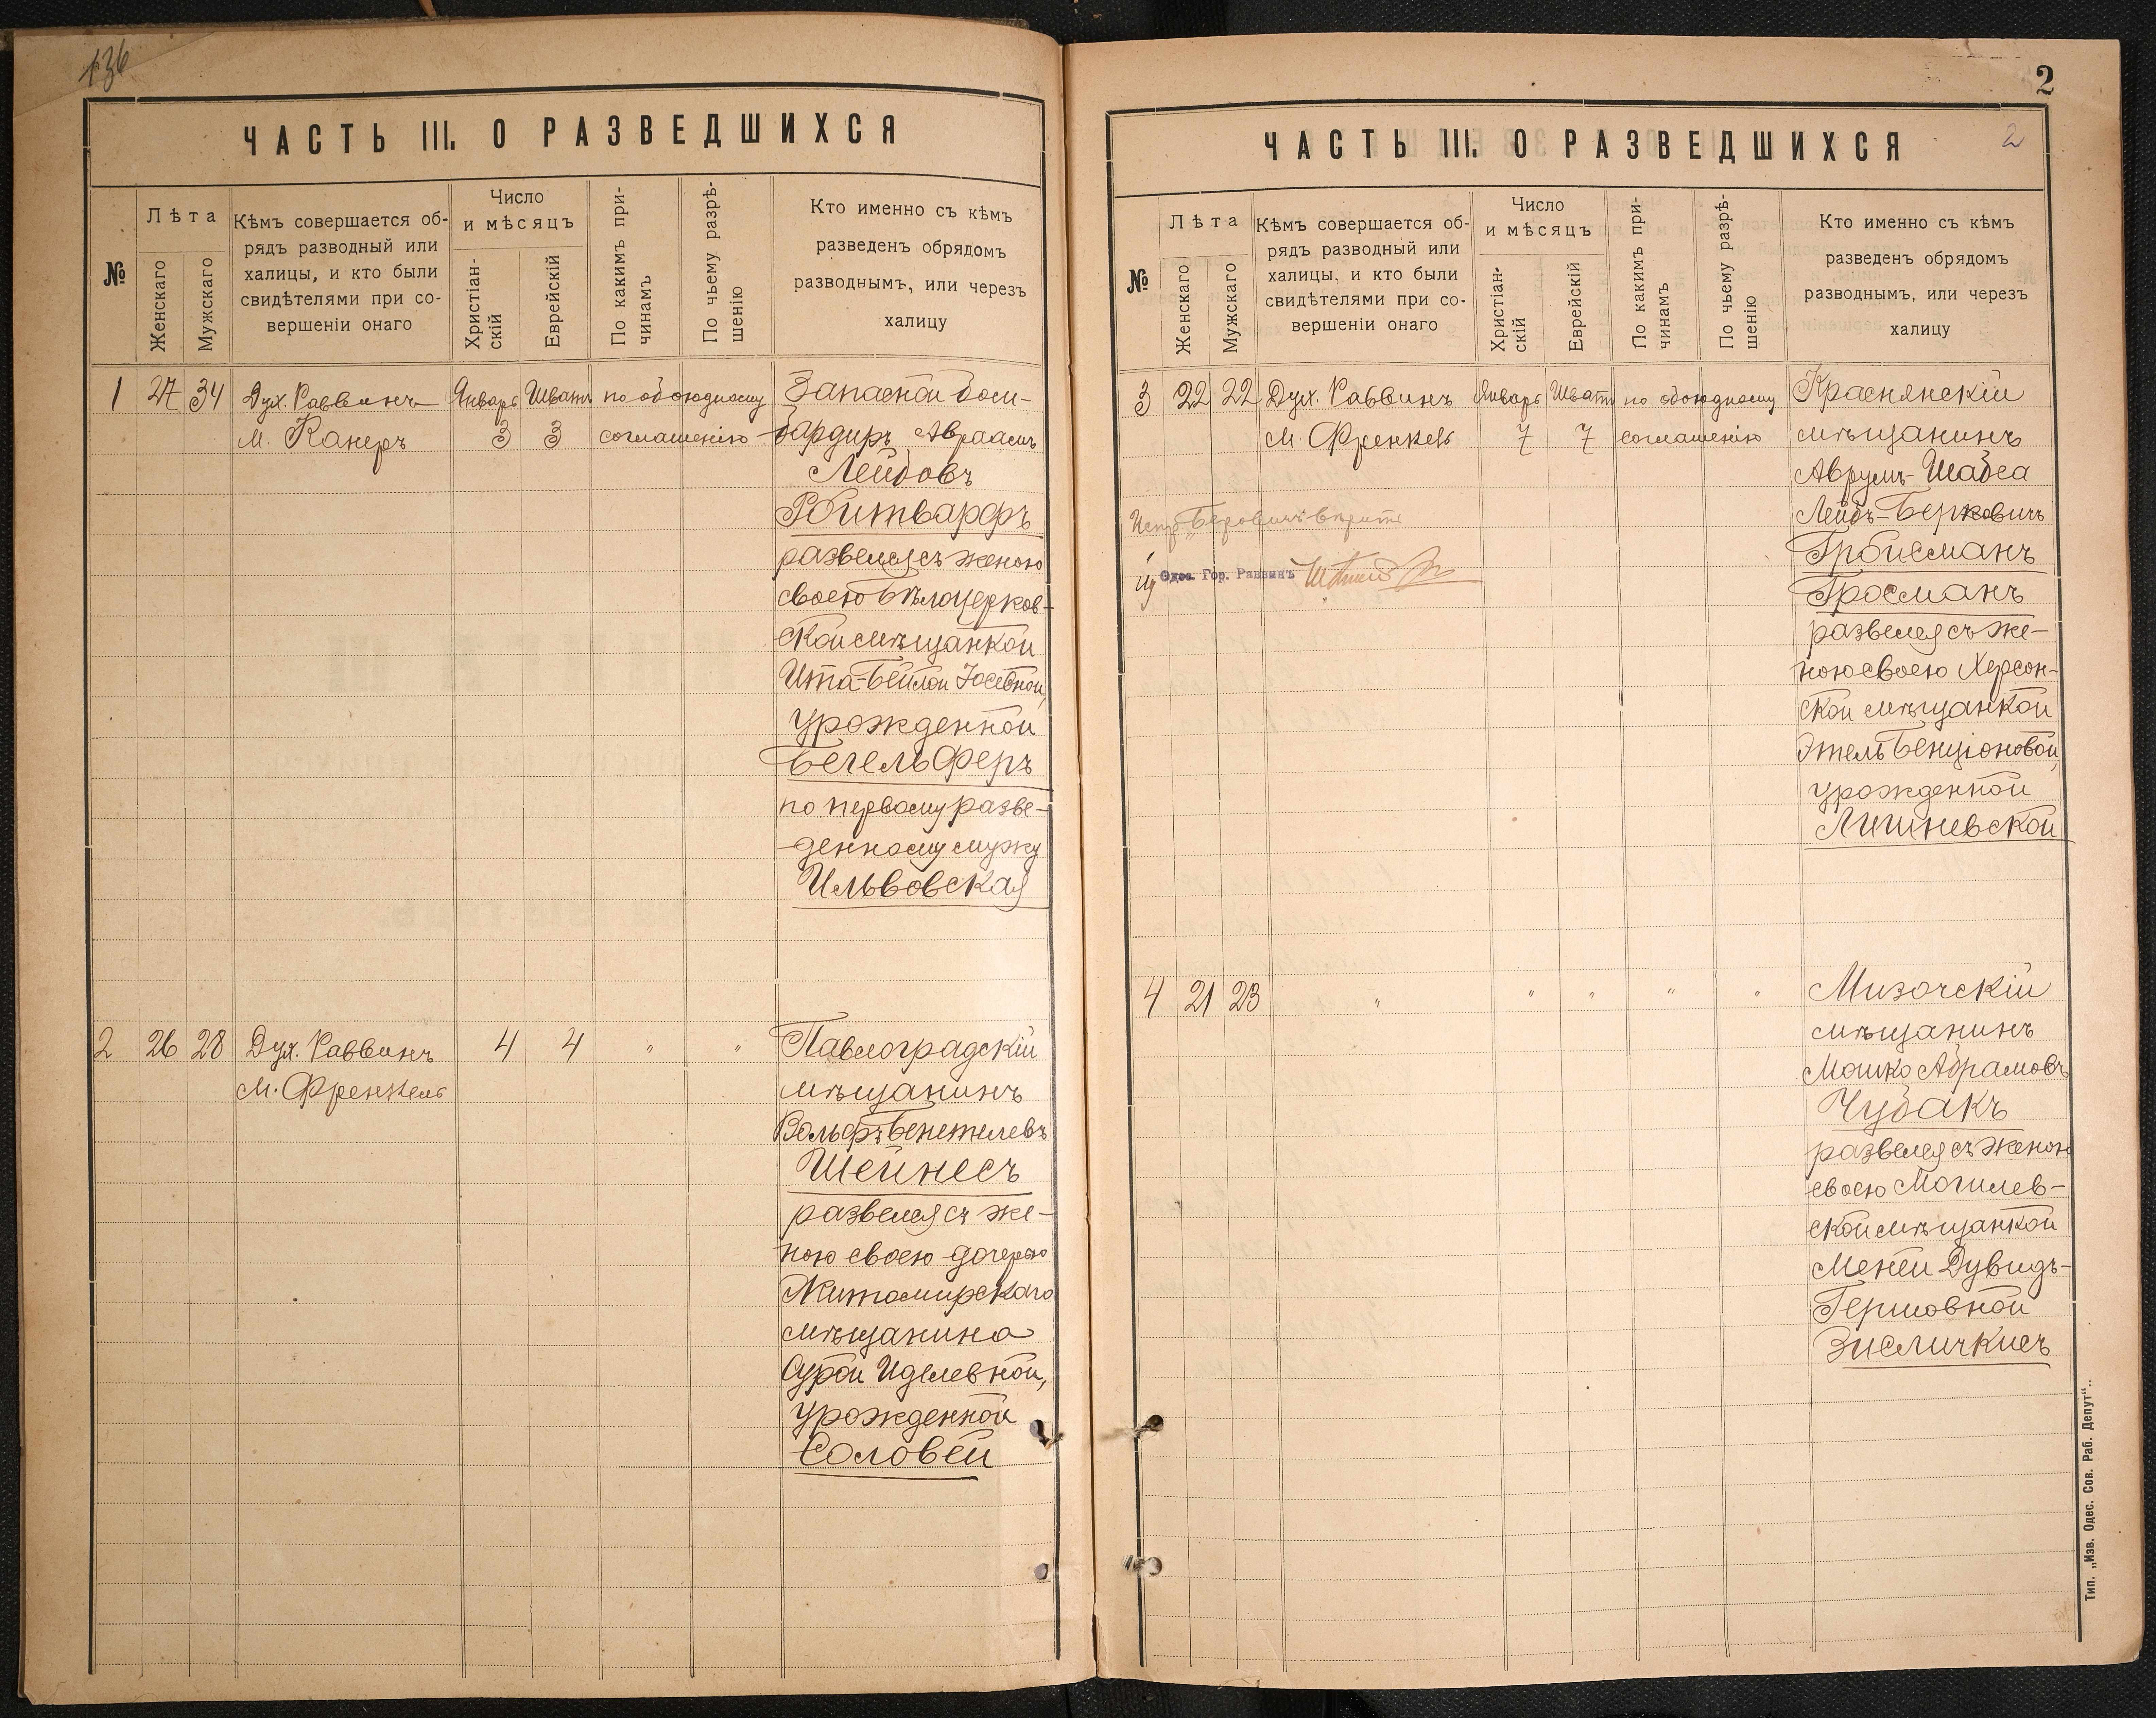 136
ЧАСТЬ III. О РАЗВЕДШИХСЯ
№
Лѣта
Женскаго
Мужскаго
Кѣмъ совершается об-
рядъ разводный или
халицы, и кто были
свидѣтелями при со-
вершеніи онаго
Число
и мѣсяцъ
Христіан-
скій
Еврейскій
По какимъ при-
чинамъ
По чьему разрѣ-
шенію
Кто именно съ кѣмъ
разведенъ обрядомъ
разводнымъ, или черезъ
халицу
1 27 34 Дух. Раввинъ Январь Шватъ по обоюдному Запасной бом-
М. Канеръ 3 3 соглашенію бардиръ Авраамъ
Лейбовъ
Ройтварфъ
развелся съ женою
своею Бѣлоцерков-
ской мѣщанкой
Ита-Бейлой Іосевной,
урожденной
Бегельферъ
по первому разве-
денному мужу
Ильвовская
2 26 28 Дух. Раввинъ 4 4 " " Павлоградскій
М. Френкель мѣщанинъ
Вольфъ Бенетилевъ
Шейнесъ
развелся съ же-
ною своею дочерью
Житомирскаго
мѣщанина
Сурой Иделевной,
урожденной
Соловей
2
ЧАСТЬ III. О РАЗВЕДШИХСЯ
2
№
Лѣта
Женскаго
Мужскаго
Кѣмъ совершается об-
рядъ разводный или
халицы, и кто были
свидѣтелями при со-
вершеніи онаго
Число
и мѣсяцъ
Христіан-
скій
Еврейскій
По какимъ при-
чинамъ
По чьему разрѣ-
шенію
Кто именно съ кѣмъ
разведенъ обрядомъ
разводнымъ, или черезъ
халицу
3 22 22 Дух. Раввинъ Январь Шватъ по обоюдному Краснянскій
М. Френкель 7 7 соглашенію мѣщанинъ
Аврумъ-Шабса
Лейбъ-Берковичъ
Гройсманъ
Гросманъ
развелся съ же-
ною своею Херсон-
ской мѣщанкой
Этель Бенціоновой,
урожденной
Лишневской
Испр. „Беровичъ" вѣрить
Одес. Гор. Раввинъ
4 21 23 " " " " " Мизочскій
мѣщанинъ
Мошко Абрамовъ
Чубакъ
развелся съ женою
своею Могилев-
ской мѣщанкой
Менси Дувидъ-
Гершовной
Зисличкисъ
Тип. „Изв. Одес. Сов. Раб. Депут".